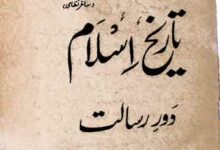 (ساغر نظامی)
تاریخ اسلام
دورِ رسالت